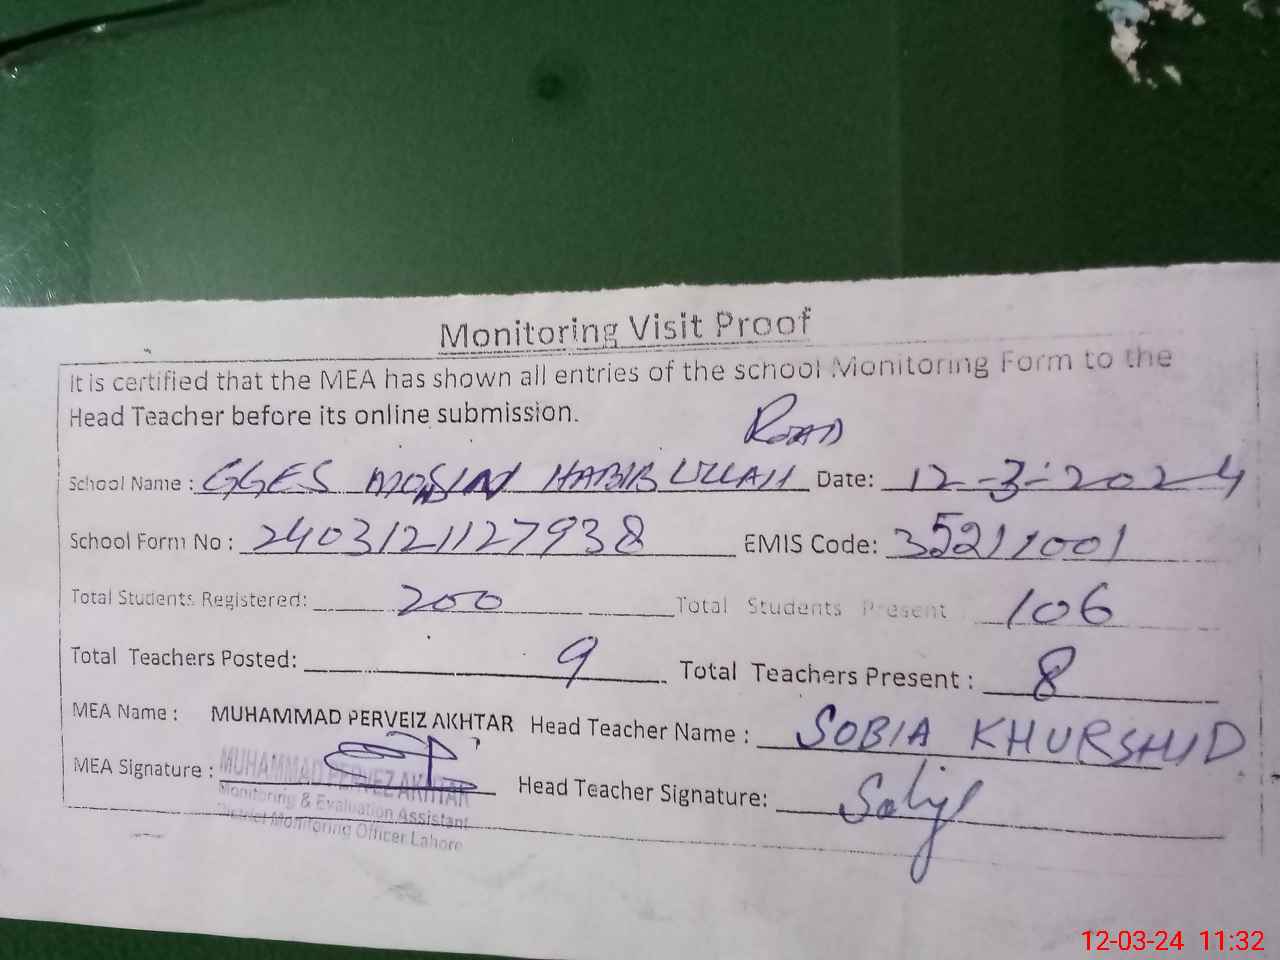 Monitoring Visit Proof
It is certified that the MEA has shown all entries of the school Monitoring Form to the
Head Teacher before its online submission.
ROAD
School Name : GGES MOHSIN HABIB ULLAH Date: 12-3-2024
School Form No : 2403121127938 EMIS Code: 35211001
Total Students Registered: 200 Total Students Present 106
Total Teachers Posted: 9 Total Teachers Present : 8
MEA Name : MUHAMMAD PERVEIZ AKHTAR Head Teacher Name : SOBIA KHURSHID
MEA Signature : MUHAMMAD PERVEZ AKHTAR Head Teacher Signature:
Monitoring & Evaluation Assistant
District Monitoring Officer Lahore
12-03-24 11:32